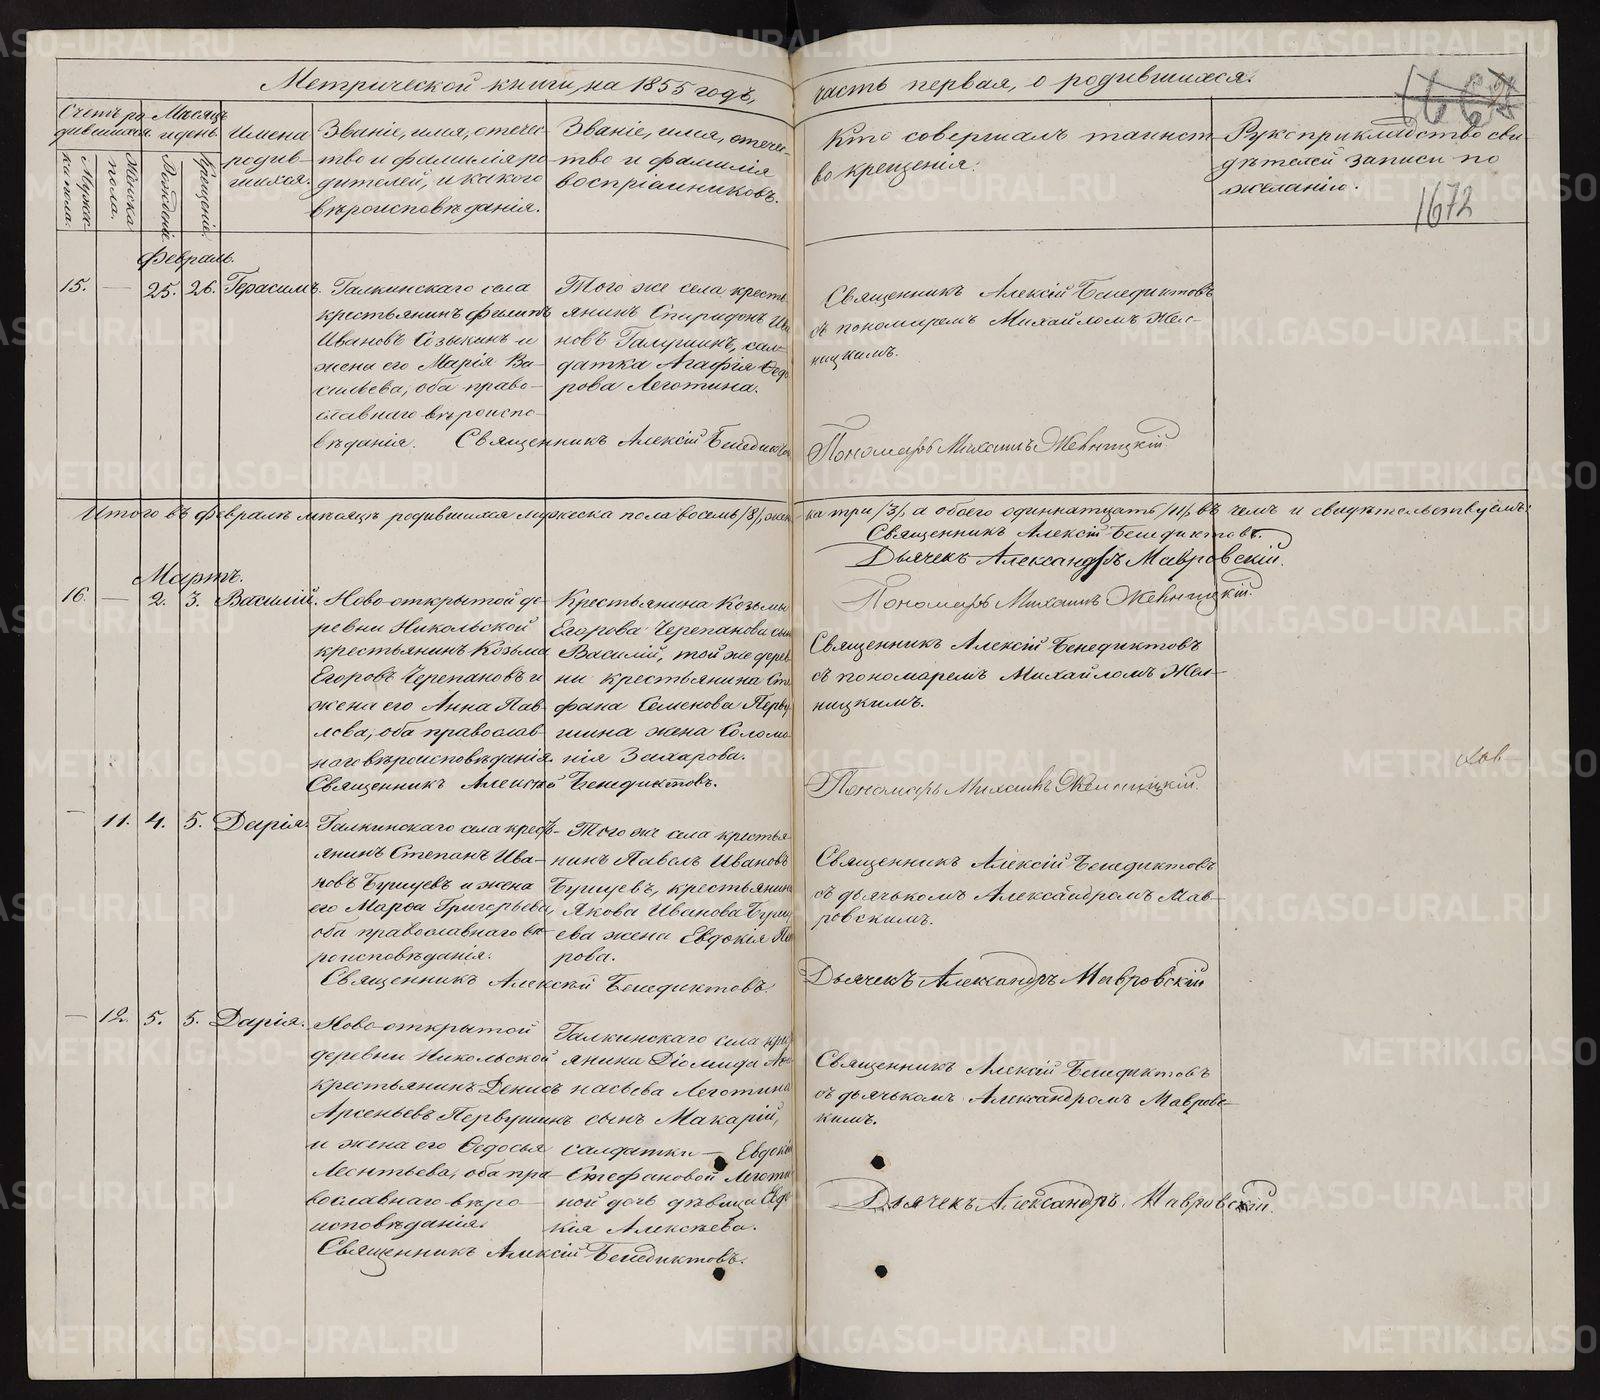 Метрической книги, на 1855 годъ,
часть первая, о родившихся.
1672
Счетъ ро-
дившихся.
Мужес-
ка пола.
Женска
пола.
Мѣсяцъ
и день.
Рожденія.
Крещенія.
Имена
родив-
шихся.
Званіе, имя, отече-
тво и фамилія ро-
дителей, и какого
вѣроисповѣданія.
Званіе, имя, отече-
тво и фамилія
воспріемниковъ.
Кто совершалъ таинст-
во крещенія.
Рукоприкладство сви-
дѣтелей записи по
желанію.
Февраль.
15. — 25. 26. Герасимъ.
Галкинскаго села
крестьянинъ Филиппъ
Ивановъ Созыкинъ и
жена его Марія Ва-
сильева, оба право-
славнаго вѣроиспо-
вѣданія.
Того же села кресть
янинъ Спиридонъ Ива
новъ Галушинъ, сол-
датка Агафія Ѳедо
рова Леготина.
Священникъ Алексій Бенедиктовъ
Священникъ Алексій Бенедиктовъ
съ пономаремъ Михайломъ Жел-
ницкимъ.
Пономарь Михаилъ Желницкій
Итого въ Февралѣ мѣсяцѣ родившихся мужеска пола восемь /8/, женс
ка три /3/, а обоего одиннатцать /11/, въ чемъ и свидѣтельствуемъ:
Священникъ Алексій Бенедиктовъ.
Дьячекъ Александръ Мавровскій.
Пономарь Михаилъ Желницкій.
Мартъ.
16. — 2. 3. Василій.
Ново-открытой де-
ревни Никольской
крестьянинъ Козьма
Егоровъ Черепановъ и
жена его Анна Пав-
лова, оба православ-
наго вѣроисповѣданія.
Крестьянина Козьмы
Егорова Черепанова сын
Василій, той же дерев
ни крестьянина Сте
фана Семенова Перву
шина жена Соломо
нія Захарова.
Священникъ Алексій Бенедиктовъ.
Священникъ Алексій Бенедиктовъ
съ пономаремъ Михайломъ Жел-
ницкимъ.
Пономарь Михаилъ Желницкій.
— 11. 4. 5. Дарія.
Галкинскаго села кресть-
янинъ Степанъ Ива-
новъ Бушуевъ и жена
его Марѳа Григорьева,
оба православнаго вѣ-
роисповѣданія.
Того же села крестья
нинъ Павелъ Ивановъ
Бушуевъ, крестьянина
Якова Иванова Бушу
ева жена Евдокія Пе
рова.
Священникъ Алексій Бенедиктовъ.
Священникъ Алексій Бенедиктовъ
съ дьячькомъ Александромъ Мав-
ровскимъ.
Дьячекъ Александръ Мавровскій
— 12. 5. 5. Дарія.
Ново-открытой
деревни Никольской
крестьянинъ Денисъ
Арсеньевъ Первушинъ
и жена его Ѳедосья
Леонтьева, оба пра-
вославнаго вѣро-
исповѣданія.
Галкинскаго села крес
янина Діомида Аѳа
насьева Леготина
сынъ Макарій,
солдатки — Евдокіи
Стефановой Леготи
ной дочь дѣвица Евдо
кія Алексѣева.
Священникъ Алексій Бенедиктовъ.
Священникъ Алексій Бенедиктовъ
съ дьячькомъ Александромъ Мавровс-
кимъ.
Дьячекъ Александръ Мавровскій.
METRIKI.GASO-URAL.RU